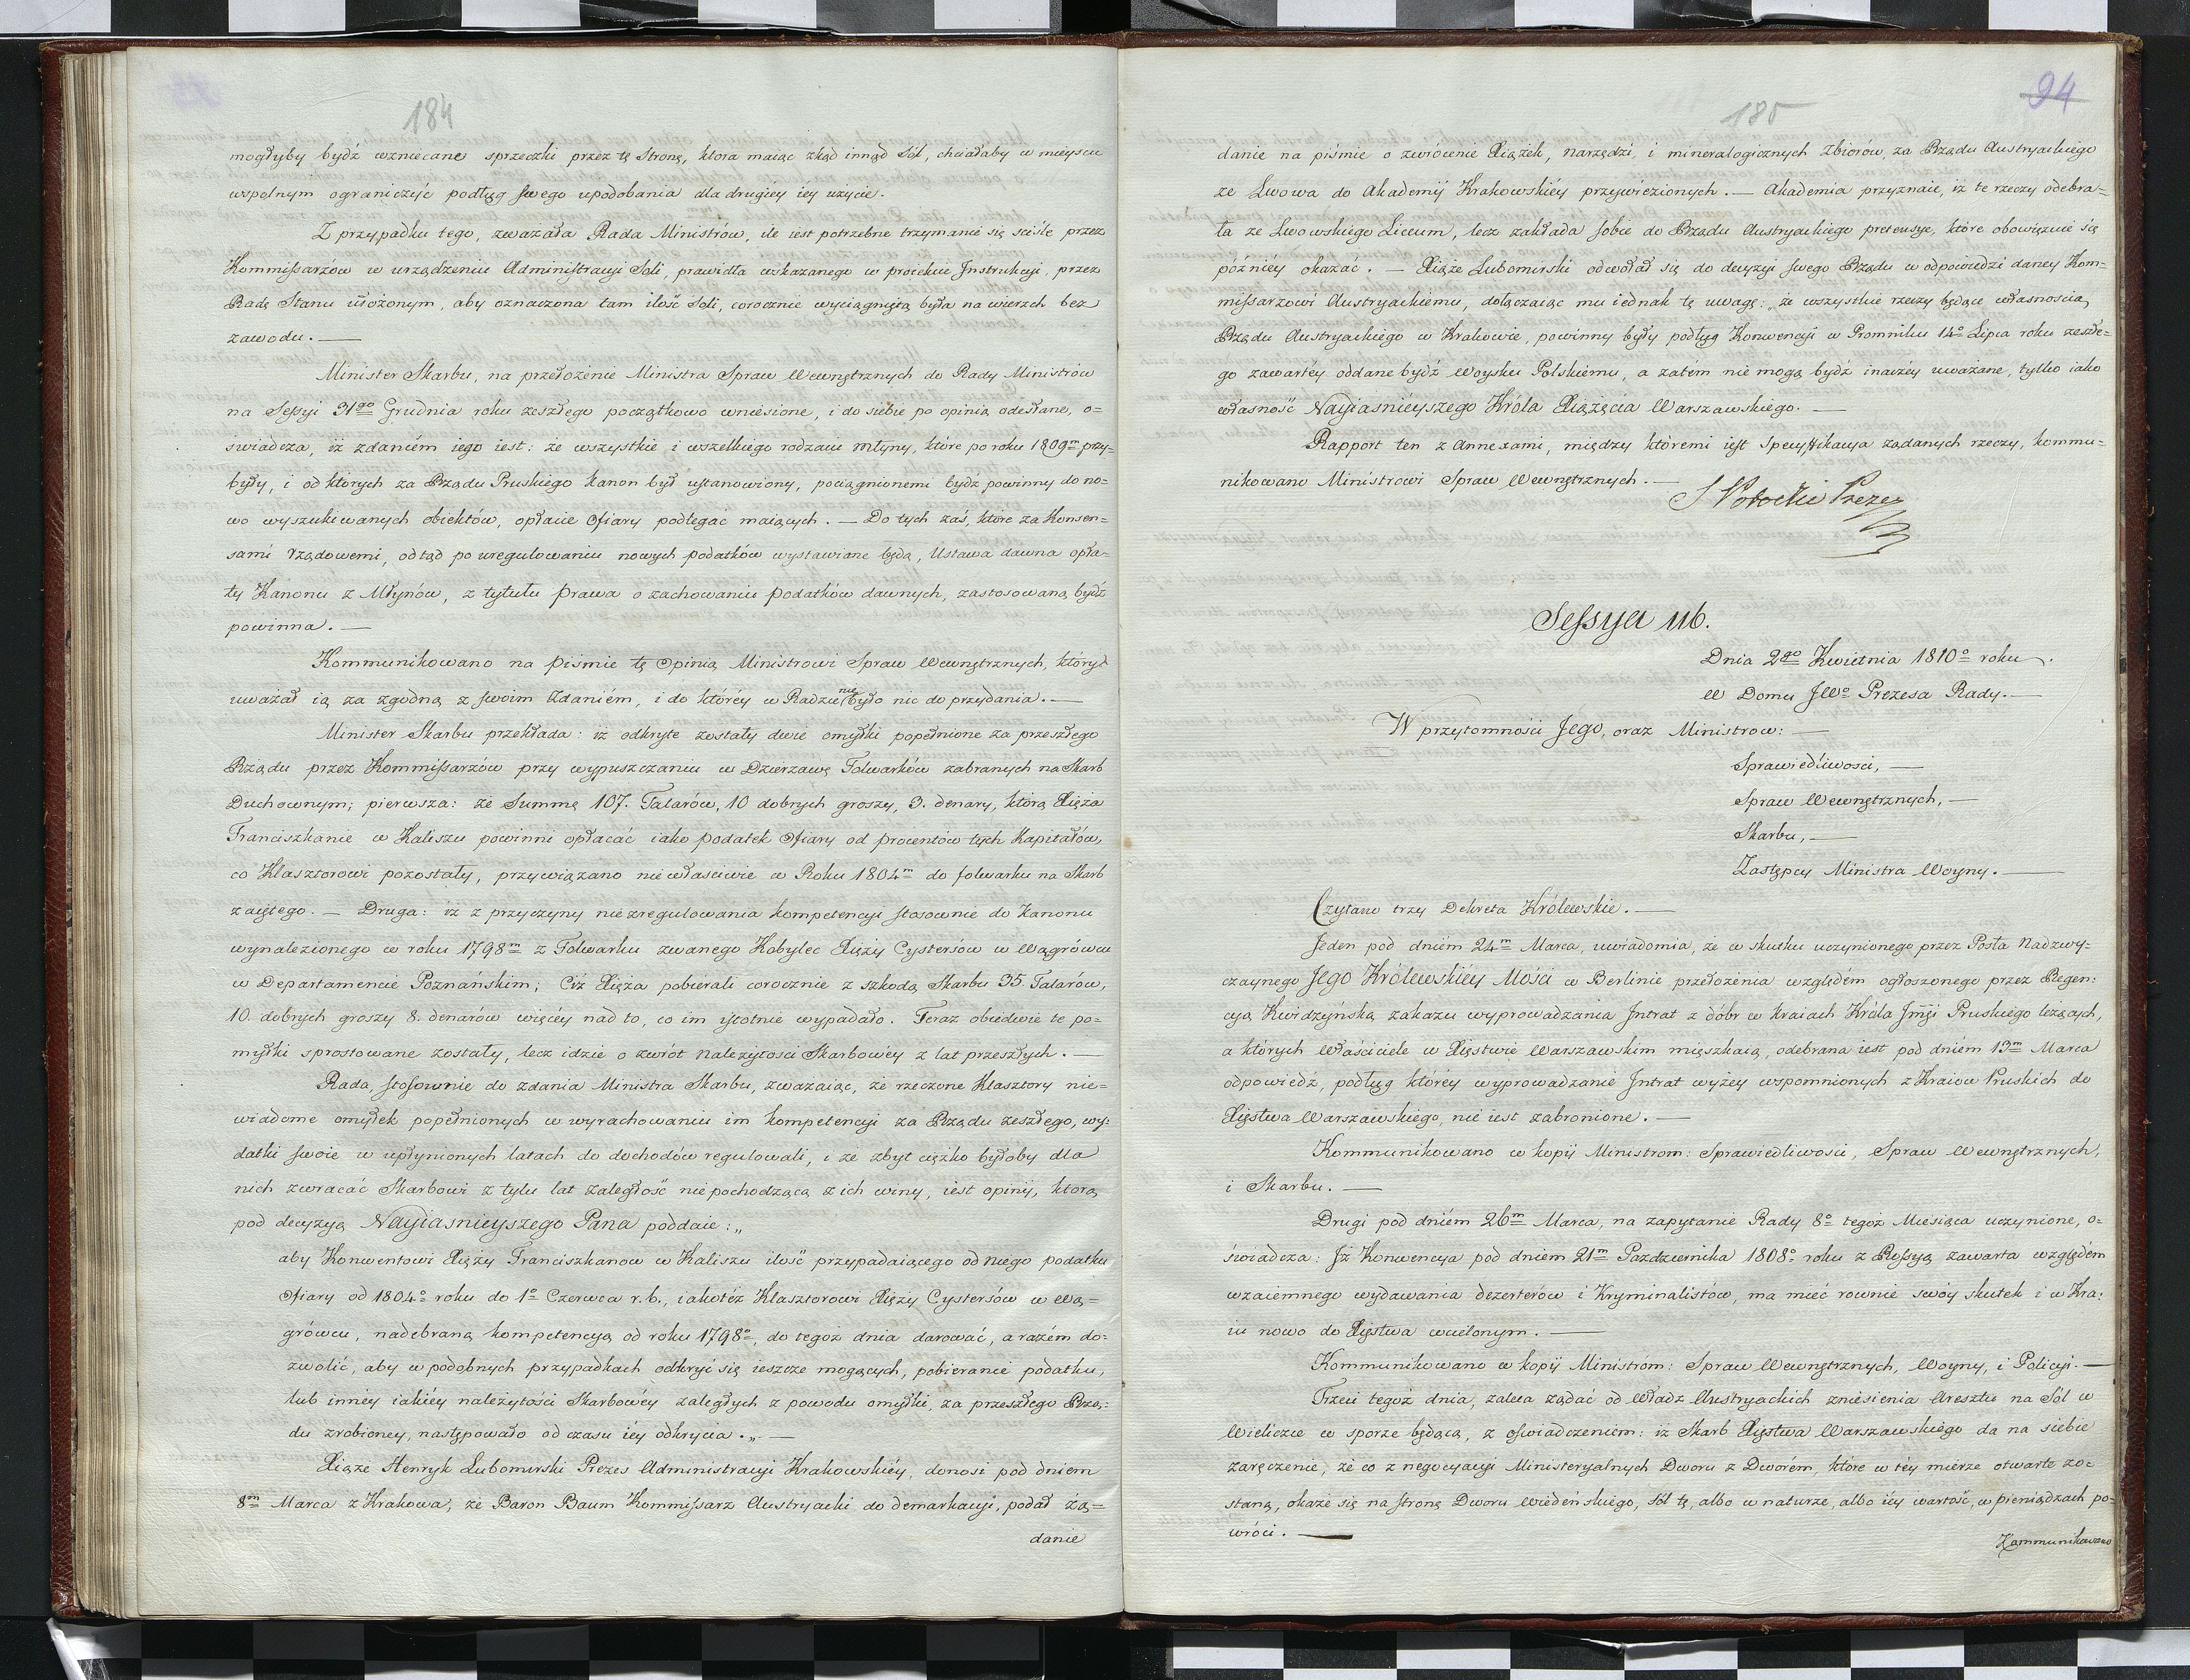 184
mogłyby bydź wzniecane sprzeczki przez tę Stronę, ktora maiąc zkąd innąd Sól, chciałaby w mieyscu
wspolnym ograniczyć podług swego upodobania dla drugiéy iéy uzycie.
Z przypadku tego, zwazała Rada Ministrów, ile iest potrzebne trzymanie się sciśle przez
Kommissarzów w urządzeniu Administracyi Soli, prawidła wskazanego w proiekcie Jnstrukcyi, przez
Radę Stanu ułożonym, aby oznaczona tam ilość Soli, corocznie wyciągniętą była na wierzch bez
zawodu. —
Minister Skarbu, na przełożenie Ministra Spraw Wewnętrznych do Rady Ministrów
na Sessyi 31go Grudnia roku zeszłego początkowo wniesione, i do siebie po opinią odesłane, o=
swiadcza, iż zdaniém iego iest: że wszystkie i wszelkiego rodzaiu młyny, które po roku 1809m przy=
były, i od ktorych za Rządu Pruskiego kanon był ustanowiony, pociągnionemi bydź powinny do no=
wo wyszukiwanych obiektów, opłacie Ofiary podlegać maiących. — Do tych zaś, które za Konsen=
sami rządowemi, odtąd po uregulowaniu nowych podatków wystawiane będą, Ustawa dawna opła=
ty Kanonu z Młynów, z tytułu prawa o zachowaniu podatków dawnych, zastosowaną bydź
powinna. —
Kommunikowano na piśmie tę Opinią Ministrowi Spraw Wewnętrznych, który
uważał ią za zgodną z swoim zdaniém, i do któréy w Radzie nie było nic do przydania. —
Minister Skarbu przekłada: iż odkryte zostały dwie omyłki popełnione za przeszłego
Rządu przez Kommissarzów przy wypuszczaniu w Dzierzawę Folwarków zabranych na Skarb
Duchownym; pierwsza: że Summę 107. Talarów, 10 dobrych groszy, 3. denary, którą Xięża
Franciszkanie w Kaliszu powinni opłacać iako podatek Ofiary od procentów tych Kapitałów,
co Klasztorowi pozostały, przywiązano niewłaściwie w Roku 1804m do folwarku na Skarb
zaiętego. — Druga: iż z przyczyny nie zregulowania kompetencyi stosownie do Kanonu
wynalezionego w roku 1798m z Folwarku zwanego Kobylec Xięży Cystersów w Wągrówcu
w Departamencie Poznańskim; Ciż Xięża pobierali corocznie z szkodą Skarbu 35. Talarów,
10. dobrych groszy 8. denarów więcéy nad to, co im istotnie wypadało. Teraz obiedwie te po=
myłki sprostowane zostały, lecz idzie o zwrót należytości Skarbowéy z lat przeszłych. —
Rada, stosownie do zdania Ministra Skarbu, zważaiąc, że rzeczone Klasztory nie=
wiadome omyłek popełnionych w wyrachowaniu im kompetencyi za Rządu zeszłego, wy=
datki swoie w upłynionych latach do dochodów regulowali, i ze zbyt ciężko byłoby dla
nich zwracać Skarbowi z tylu lat zaległość nie pochodzącą z ich winy, iest opinij, ktorą
pod decyzyą Nayiasnieyszego Pana poddaie: „
aby Konwentowi Xięży Franciszkanow w Kaliszu ilość przypadaiącego od niego podatku
Ofiary od 1804o roku do 1o Czerwca r. b., iakotéż Klasztorowi Xięży Cystersów w Wą=
grówcu, nadebraną kompetencyą od roku 1798o, do tegoż dnia darować, a razém do=
zwolić, aby w podobnych przypadkach odkryć się ieszcze mogących, pobieranie podatku,
lub innéy iakiéy należytości Skarbowéy zaległych z powodu omyłki, za przeszłego Rzą=
du zrobioney, następowało od czasu iéy odkrycia. „ —
Xiąże Henryk Lubomirski Prezes Administracyi Krakowskiéy, donosi pod dniem
8m Marca z Krakowa, że Baron Baum Kommissarz Austryacki do demarkacyi, podał żą=
danie
94
185
danie na piśmie o zwrócenie Xiążek, narzędzi, i mineralogicznych Zbiorów, za Rządu Austryackiego
ze Lwowa do Akademij Krakowskiéy przywiezionych. — Akademia przyznaie, iż te rzeczy odebra=
ła ze Lwowskiego Liceum, lecz zakłada sobie do Rządu Austryackiego pretensye, które obowiązuie się
późniéy okazać. — Xiąże Lubomirski odwołał się do decyzyi swego Rządu w odpowiedzi daney Kom=
missarzowi Austryackiému, dołączaiąc mu iednak tę uwagę: „że wszystkie rzeczy będące własnością
Rządu Austryackiego w Krakowie, powinny były podług Konwencyi w Promniku 14o Lipca roku zeszłe=
go zawartéy oddane bydź Woysku Polskiemu, a zatém nie mogą bydź inaczéy uważane, tylko iako
własność Nayiasniéyszego Króla Xiążęcia Warszawskiego. —
Rapport ten z Annexami, między któremi iest Specyfikacya ządanych rzeczy, kommu=
nikowano Ministrowi Spraw Wewnętrznych. —
S Potocki Prezes
Sessya 116.
Dnia 2go Kwietnia 1810o roku.
W Domu JWo Prezesa Rady. —
W przytomności Jego, oraz Ministrow: —
Sprawiedliwosci, —
Spraw Wewnętrznych, —
Skarbu, —
Zastępcy Ministra Woyny. —
Czytano trzy Dekreta Królewskie. —
Jeden pod dniém 24m Marca, uwiadomia, że w skutku uczynionego przez Posła Nadzwy=
czaynego Jego Królewskiéy Mości w Berlinie przełożenia względém ogłoszonego przez Regen=
cyą Kwidzyńską zakazu wyprowadzania Jntrat z dóbr w kraiach Króla Jmći Pruskiego leżących,
a których Właściciele w Xięstwie Warszawskim mięszkaią, odebrana iest pod dniém 13m Marca
odpowiedź, podług któréy wyprowadzanie Jntrat wyżey wspomnionych z Kraiow Pruskich do
Xięstwa Warszawskiego, nie iest zabronione. —
Kommunikowano w kopij Ministrom: Sprawiedliwości, Spraw Wewnętrznych,
i Skarbu. —
Drugi pod dniém 26m Marca, na zapytanie Rady 8o tegoż Miesiąca uczynione, o=
świadcza: Jż Konwencya pod dniem 21m Pazdziernika 1808o roku z Rossyą zawarta względém
wzaiemnego wydawania dezerterów i Kryminalistów, ma mieć rownie swóy skutek i w Kra=
iu nowo do Xięstwa wcielonym. —
Kommunikowano w kopij Ministróm: Spraw Wewnętrznych, Woyny, i Policyi. —
Trzeci tegoż dnia, zaleca ządać od Władz Austryackich zniesienia Aresztu na Sól w
Wieliczce w sporze będącą, z oświadczeniem: iż Skarb Xięstwa Warszawskiego da na siebie
zaręczenie, że co z negocyacyi Ministeryalnych Dworu z Dworém, które w téy mierze otwarte zo=
staną, okaże się na stronę Dworu Wiedeńskiego, Sól tę, albo w naturze, albo iéy wartość, w pieniądzach po=
wróci. —
Kommunikowano